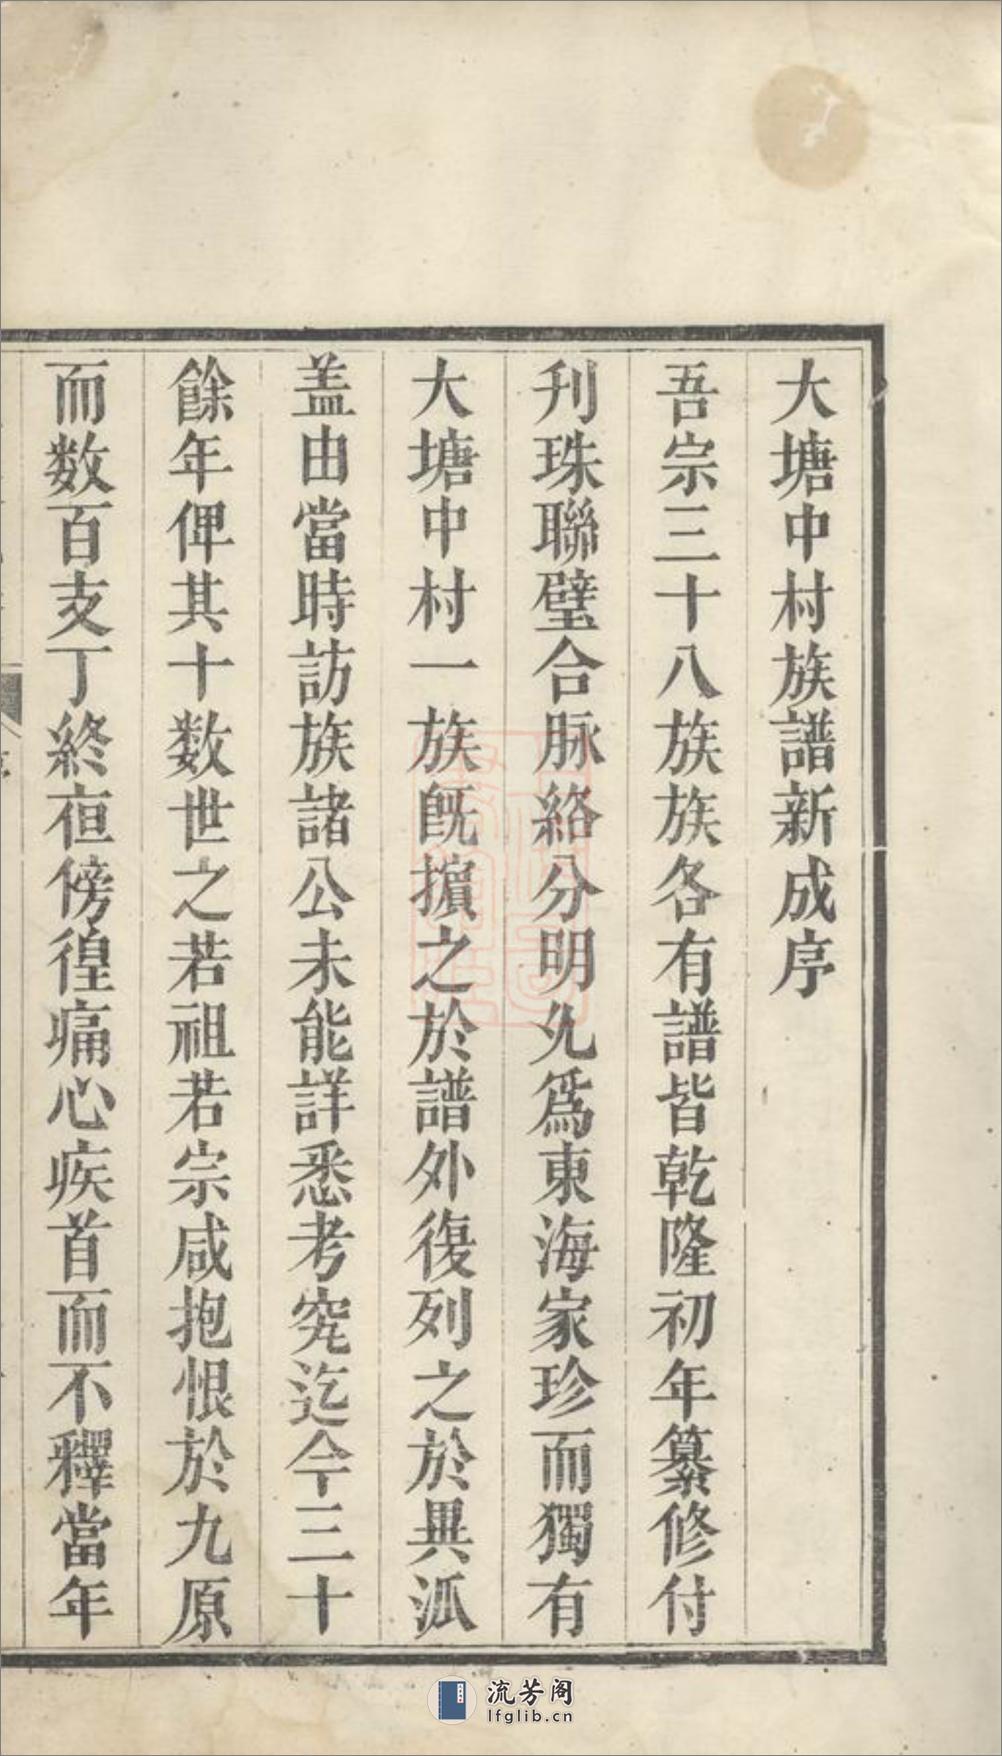 大塘中村族譜新成序
吾宗三十八族族各有譜皆乾隆初年纂修付
刋珠聯璧合脉絡分明允爲東海家珍而獨有
大塘中村一族旣擯之於譜外復列之於異派
盖由當時訪族諸公未能詳悉考究迄今三十
餘年俾其十数世之若祖若宗咸抱恨於九原
而数百支丁終夜傍徨痛心疾首而不釋當年
流芳阁
lfglib.cn